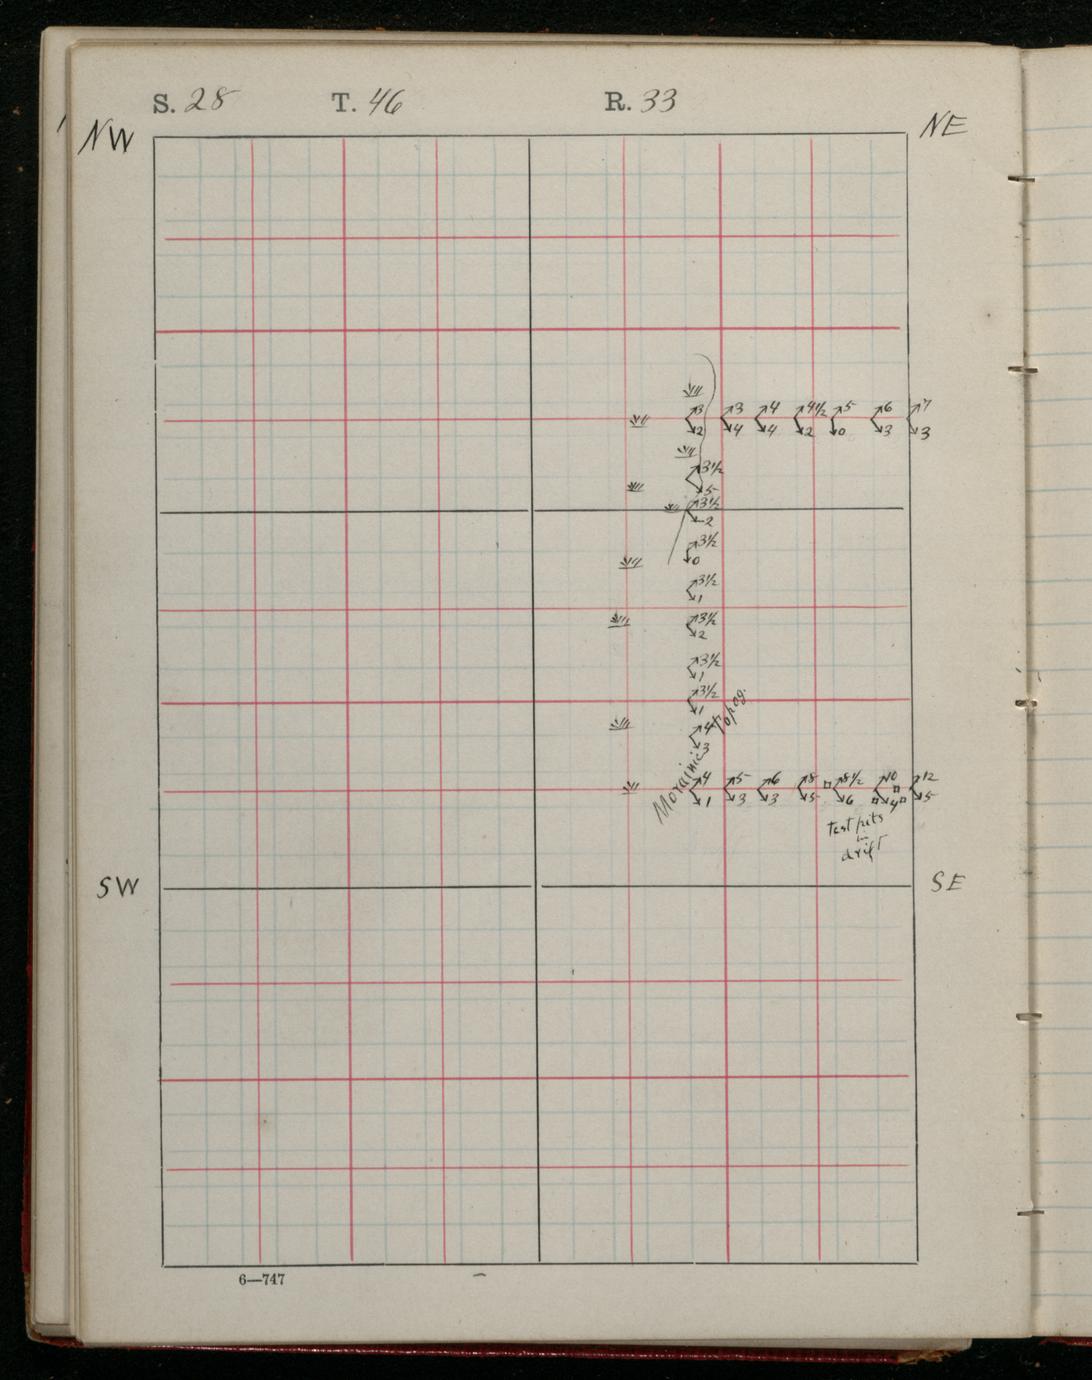 S. 28 T. 46 R. 33
NW NE
3 3 4 4½ 5 6 7
2 4 4 2 0 3 3
3½
5
3½
2
3½
0
3½
1
3½
2
3½
1
3½
1
4
3
Morainic topog.
4 5 6 8 8½ 10 12
1 3 3 5 6 4 5
test pits
in
drift
SW SE
6—747